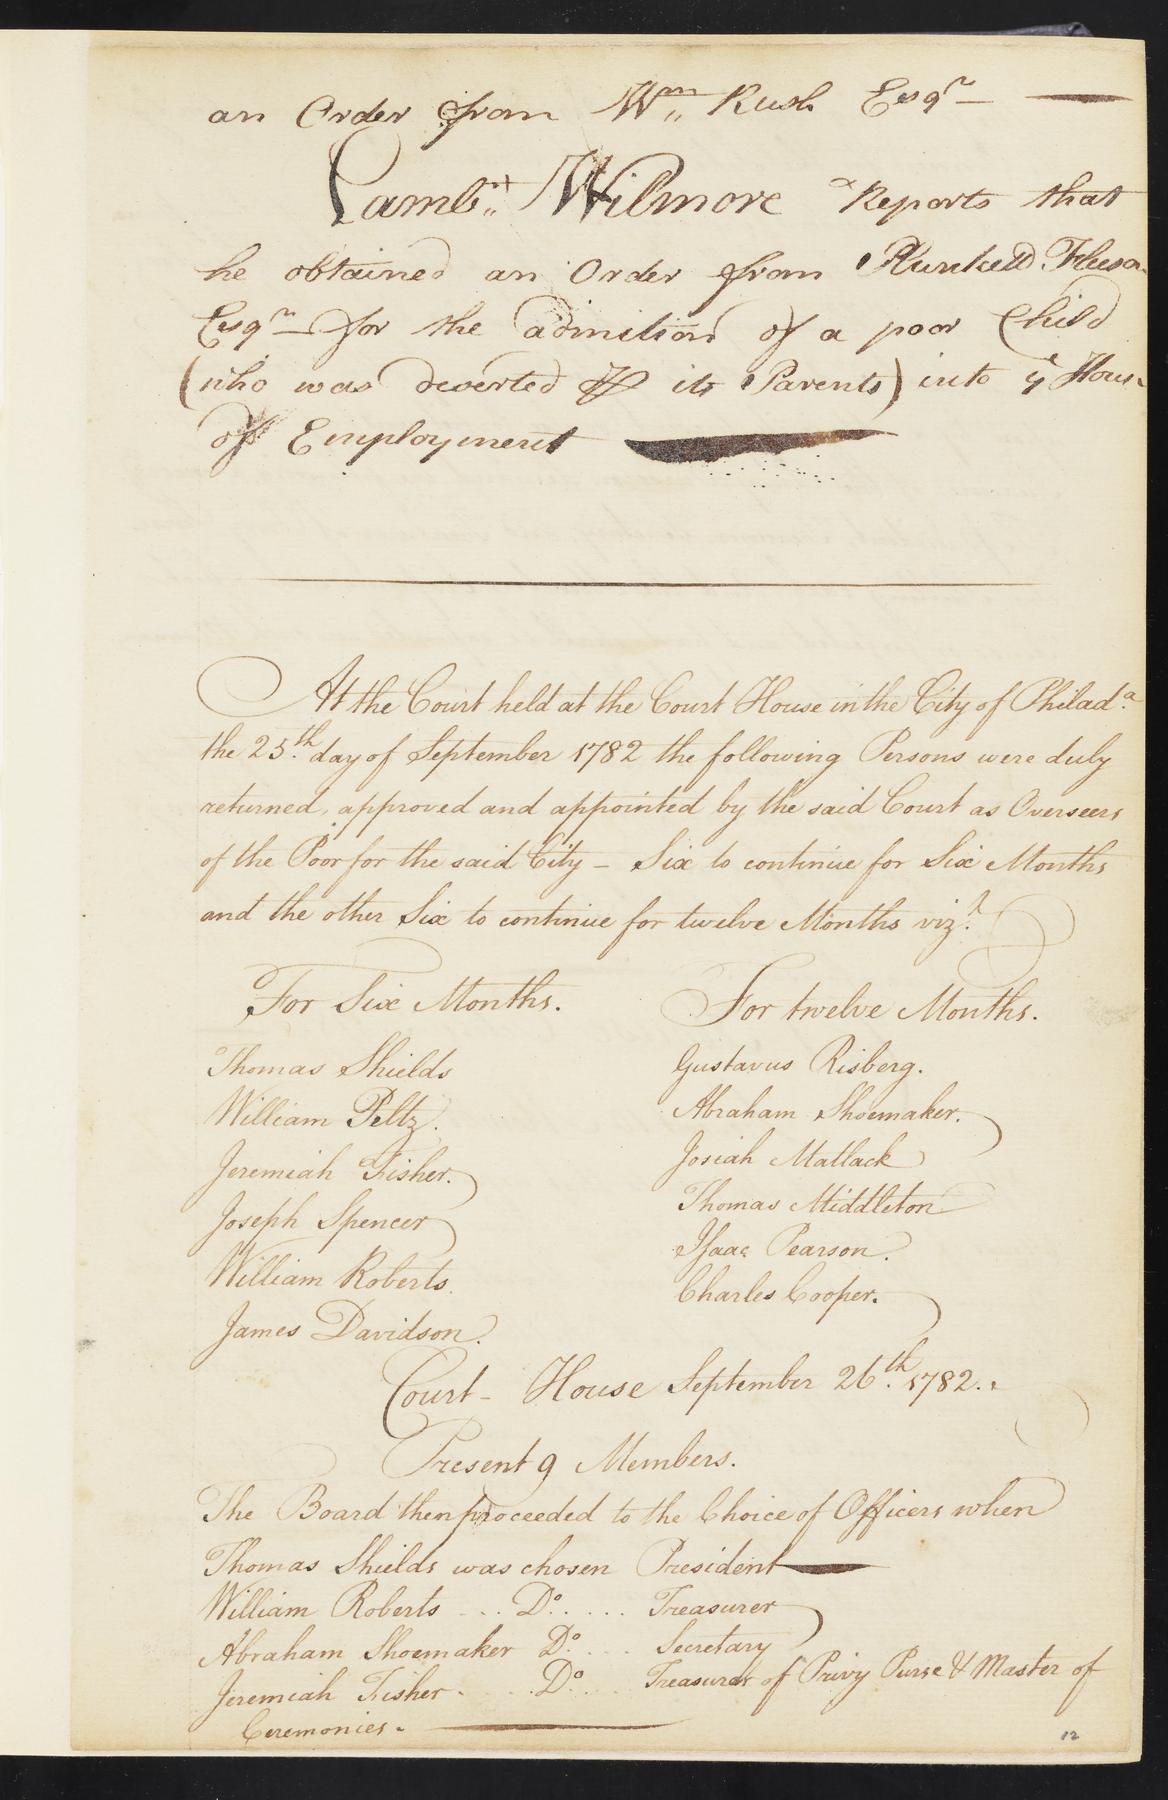 an Order from Wm,, Rush Esqr —
Lambt,, Wilmore Reports that
he obtained an Order from Plunkett Fleeson
Esqr — for the admition of a poor Child
(who was deserted ⅌ its Parents) into ye House
off Employment
At the Court held at the Court House in the City of Philada.
the 25th. day of September 1782 the following Persons were duly
returned, approved and appointed by the said Court as Overseers
of the Poor for the said City - Six to continue for Six Months
and the other Six to continue for twelve Months vizt.
For Six Months.
Thomas Shields
William Peltz.
Jeremiah Fisher.
Joseph Spencer
William Roberts.
James Davidson.
For twelve Months.
Gustavus Risberg.
Abraham Shoemaker.
Josiah Matlack
Thomas Middleton
Isaac Pearson.
Charles Cooper.
Court - House September 26th. 1782.
Present 9 Members.
The Board then proceeded to the Choice of Officers when
Thomas Shields was chosen President
William Roberts ... Do. .... Treasurer
Abraham Shoemaker Do. ... Secretary
Jeremiah Fisher. ... Do. ... Treasurer of Privy Purse & Master of
Ceremonies.
12